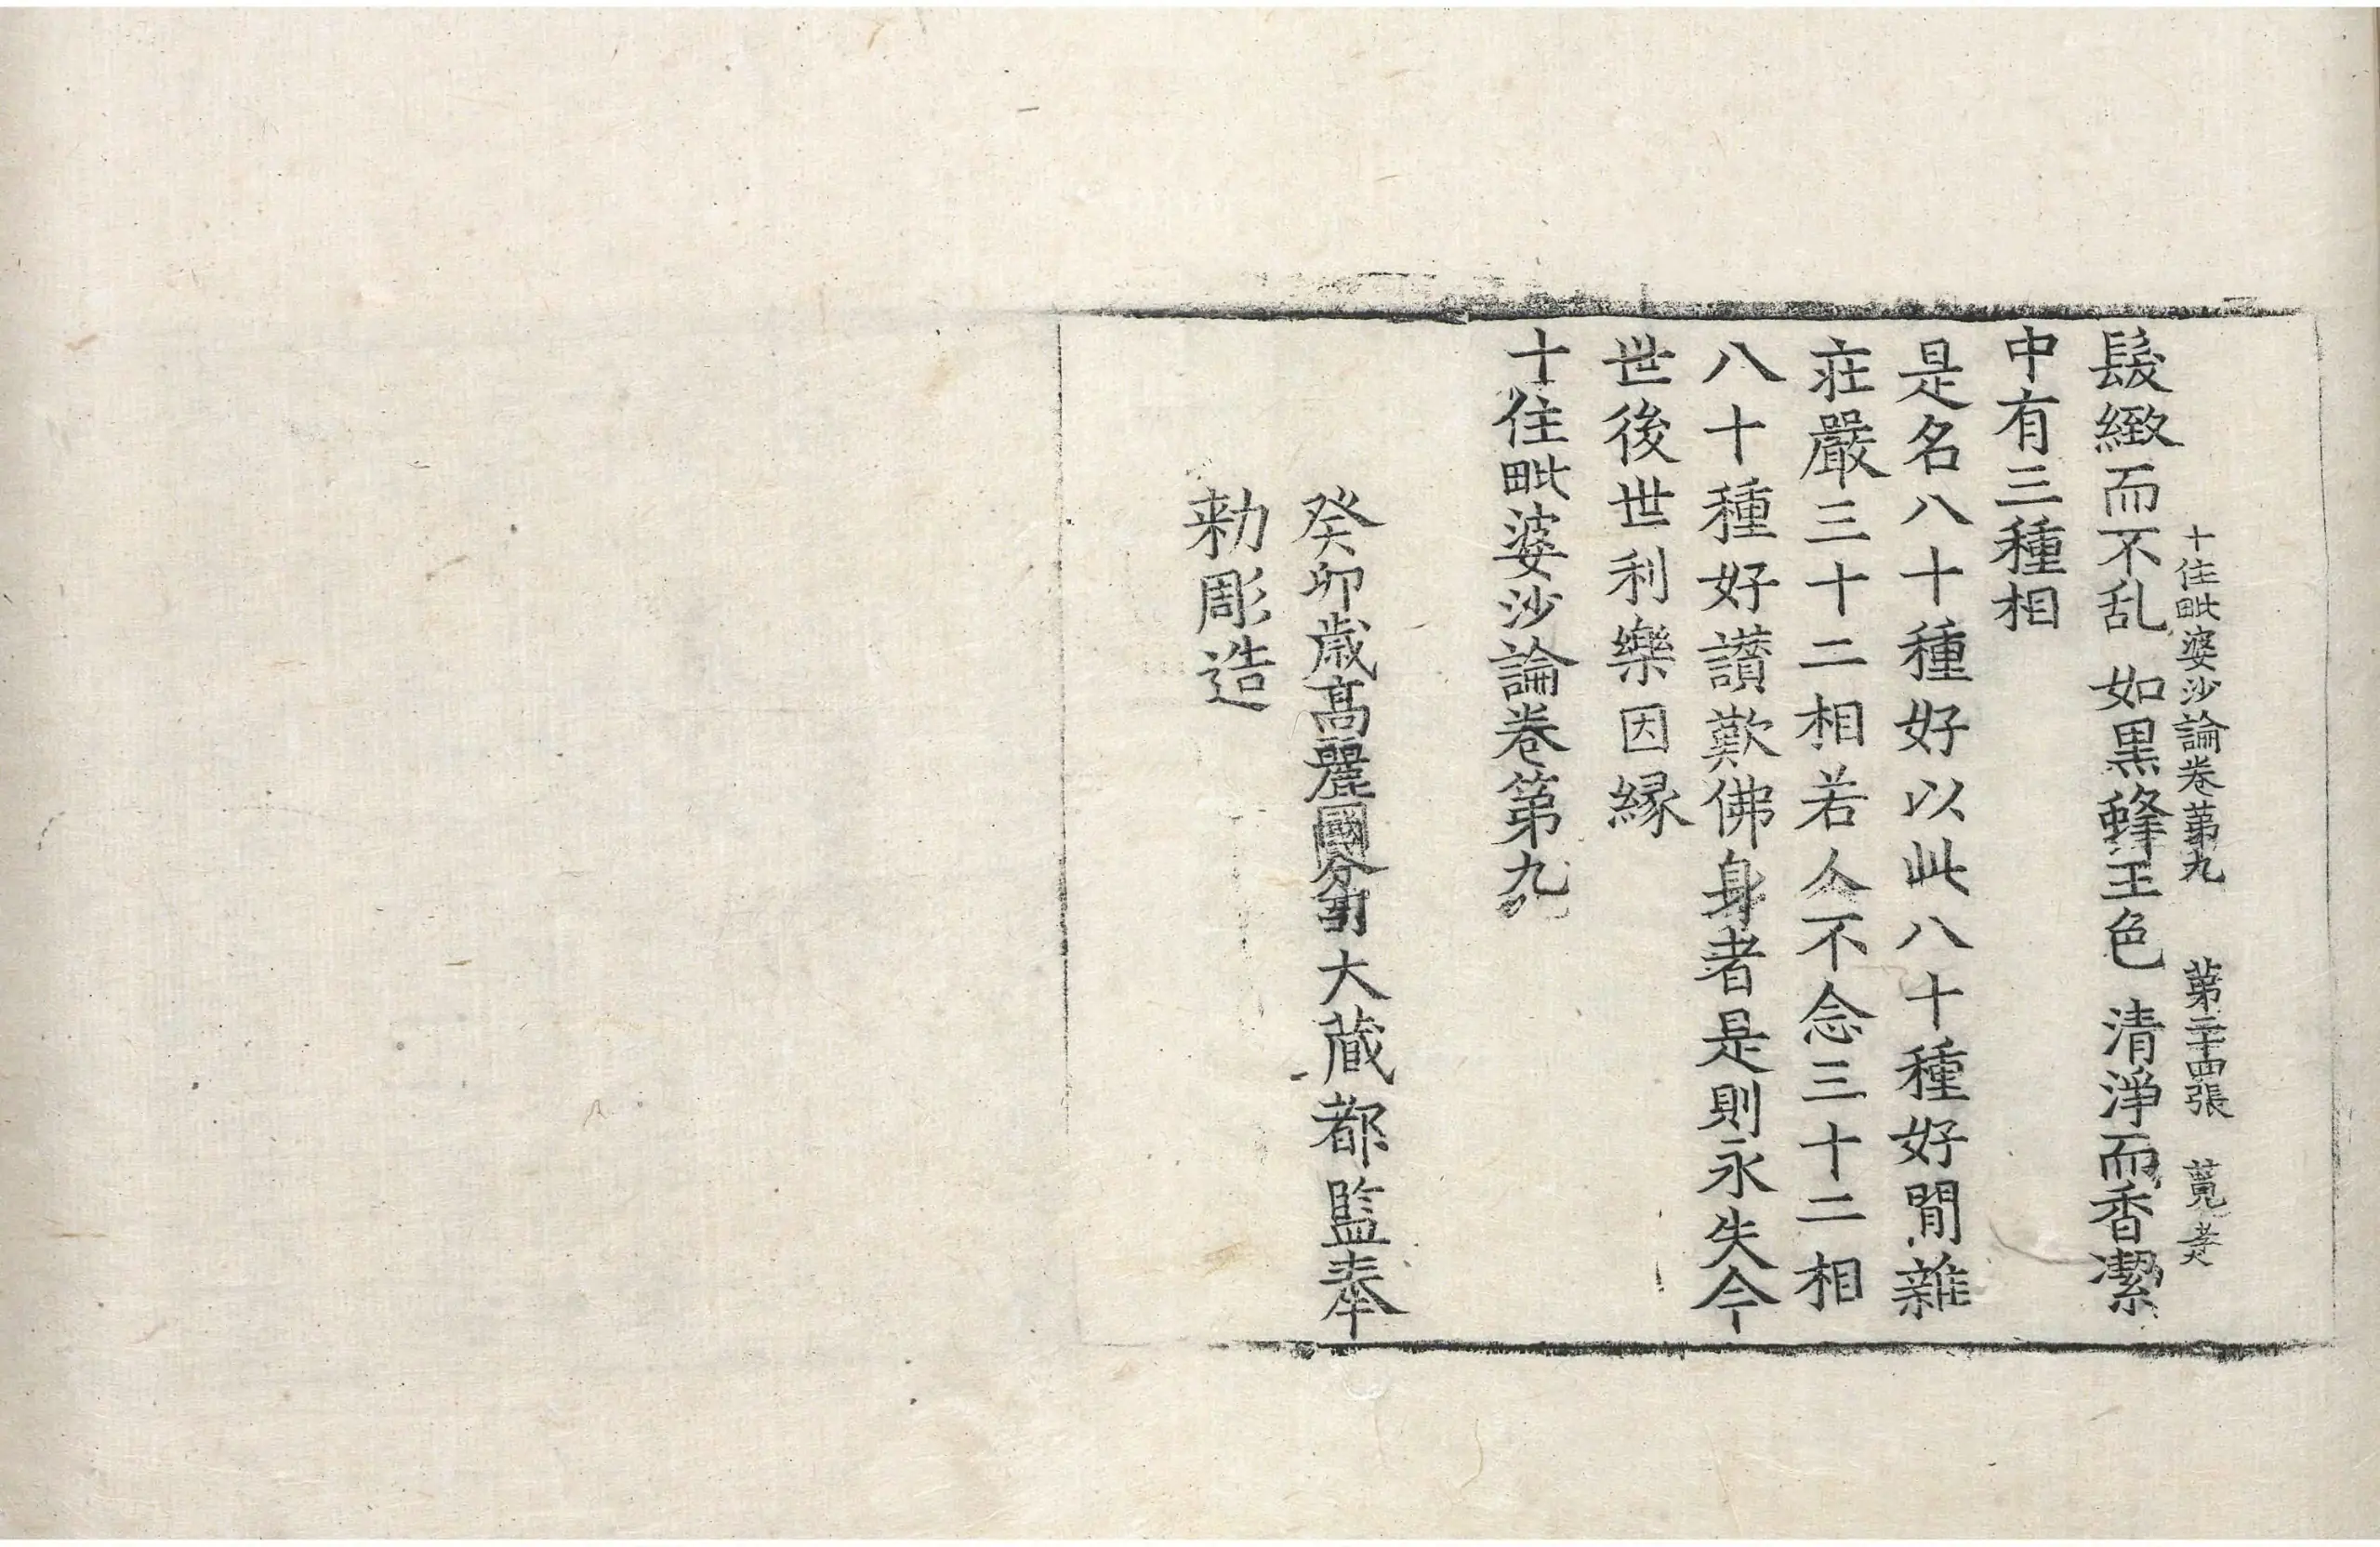 十住毗婆沙論卷第九 第二十四張
髮緻而不乱 如黒蜂王色 清淨而香潔
中有三種相
是名八十種好以此八十種好間雜
莊嚴三十二相若人不念三十二相
八十種好讃歎佛身者是則永失今
世後世利樂因縁
十住毗婆沙論卷第九
癸卯歳髙麗國分司大蔵都監奉
勑彫造